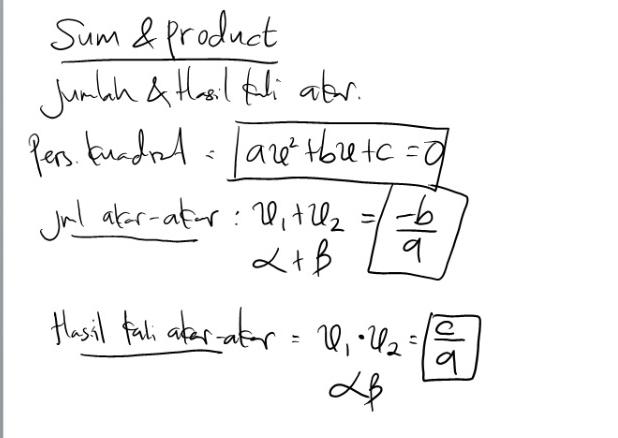 Sum & product
Jumlah & Hasil kali akar.
Pers. kuadrat = ax² + bx + c = 0
Jml akar-akar : x₁ + x₂ = -b/a
α + β
Hasil kali akar-akar = x₁ · x₂ = c/a
αβ